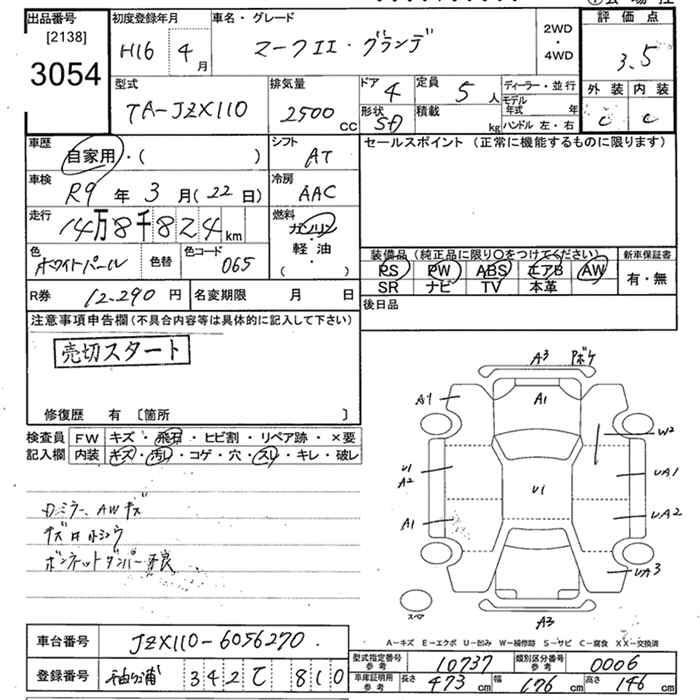 出品番号 初度登録年月 車名・グレード 2WD・4WD 評価点
[2138] H16 4月 マークII・グランデ 3.5
3054
外装 内装
型式 排気量 ドア 4 定員 5人 ディーラー・並行 C C
TA-JZX110 2500cc 形状 SD 積載 kg モデル年式 年
ハンドル 左・右
車歴 自家用・( ) シフト AT セールスポイント (正常に機能するものに限ります)
車検 R9年3月(22日) 冷房 AAC
走行 14万8千824km 燃料 ガソリン
軽油
( )
色 ホワイトパール 色替 色コード 065
装備品 (純正品に限り○をつけてください) 新車保証書
PS PW ABS エアB AW 有・無
SR ナビ TV 本革
R券 12,290円 名変期限 月 日 後日品
注意事項申告欄(不具合内容等は具体的に記入して下さい)
売切スタート
修復歴 有 〔箇所 〕
検査員 FW キズ・飛石・ヒビ割・リペア跡・×要
記入欄 内装 キズ・汚れ・コゲ・穴・スレ・キレ・破レ
ミラー、AWキズ
ボンネットダンパー不良
A3 ボケ
A1 A1
W2
U1 A2 U1 UA1
A1 UA2
UA3
スペア A3
A-キズ E-エクボ U-凹み W-補修跡 S-サビ C-腐食 XX-交換済
車台番号 JZX110-6056270
登録番号 袖ヶ浦 342 810
型式指定番号 参考 10737 類別区分番号 参考 0006
車庫証明用 参考 長さ 473cm 幅 176cm 高さ 146cm